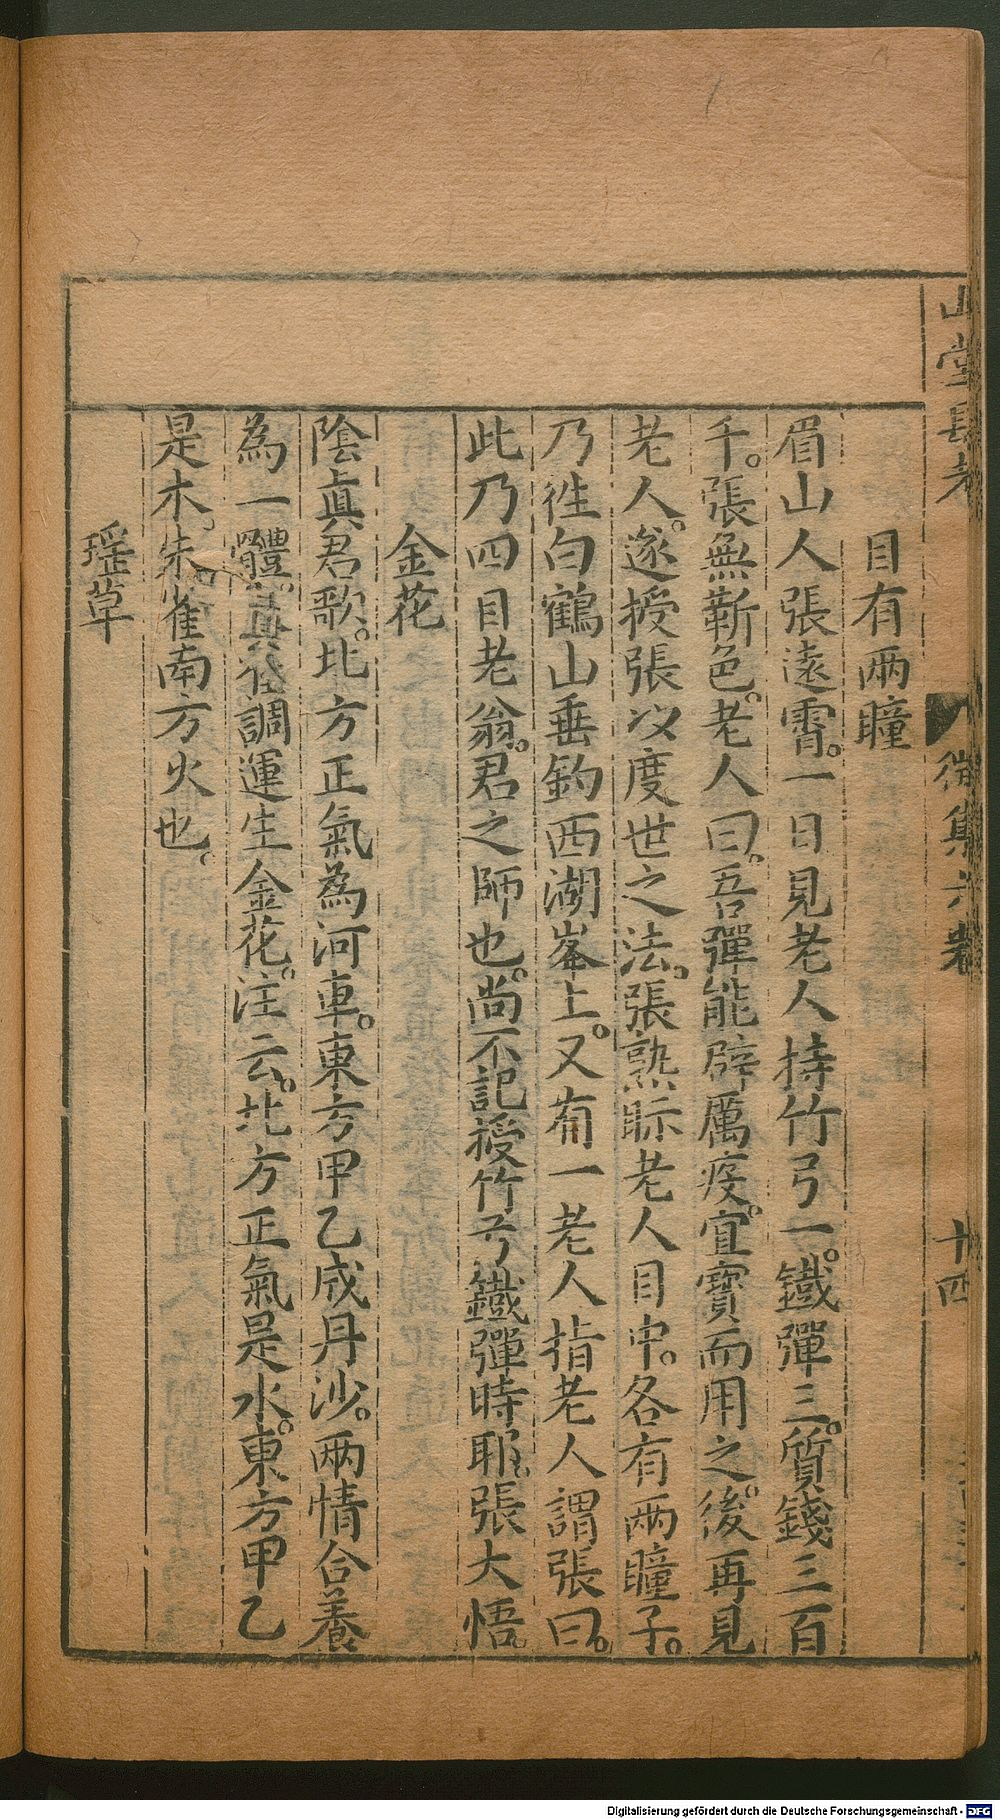 山堂肆考
徵集六卷
十四
目有兩瞳
眉山人張遠霄。一日見老人持竹弓一。鐵彈三。質錢三百
千。張無靳色。老人曰。吾彈能辟厲疫。宜寶而用之。後再見
老人。遂授張以度世之法。張熟眎老人目中。各有兩瞳子。
乃徃白鶴山垂釣西湖峯上。又有一老人指老人謂張曰。
此乃四目老翁。君之師也。尚不記授竹弓鐵彈時耶。張大悟。
金花
陰眞君歌。北方正氣為河車。東方甲乙成丹沙。兩情合養
為一體。調運生金花。注云。北方正氣是水。東方甲乙
是木。朱雀南方火也。
瑶草
Digitalisierung gefördert durch die Deutsche Forschungsgemeinschaft - DFG